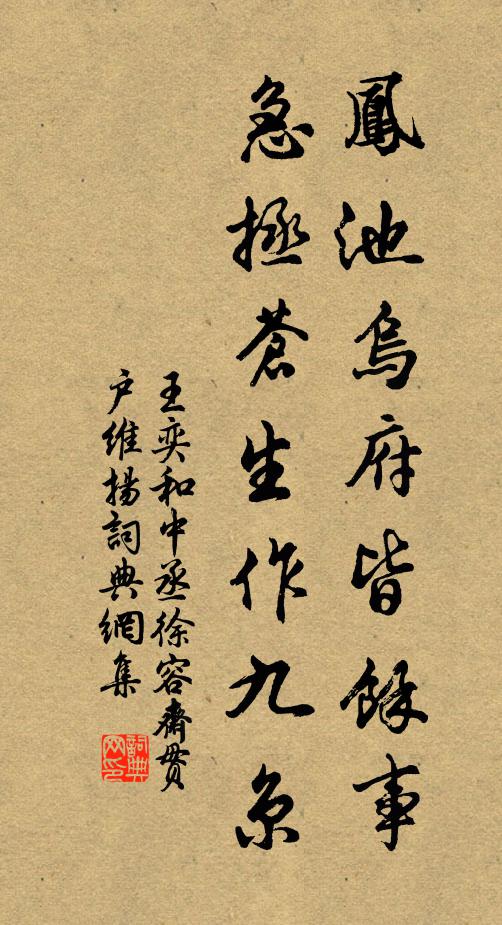 鳳池烏府皆餘事
急拯蒼生作九京
王奕和中丞徐容齋貫
户維揚詞典網集
詞典网印